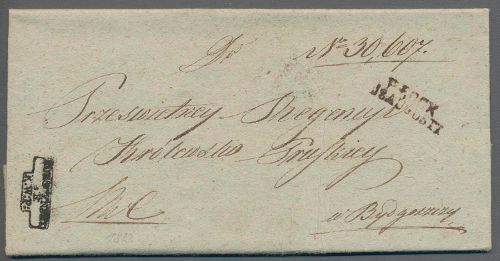 Do
No 30,607.
PŁOCK
18 AUGUSTA
Prześwietney Regencyi
Królewsko Pruskiey
w Bydgoszczy
1822